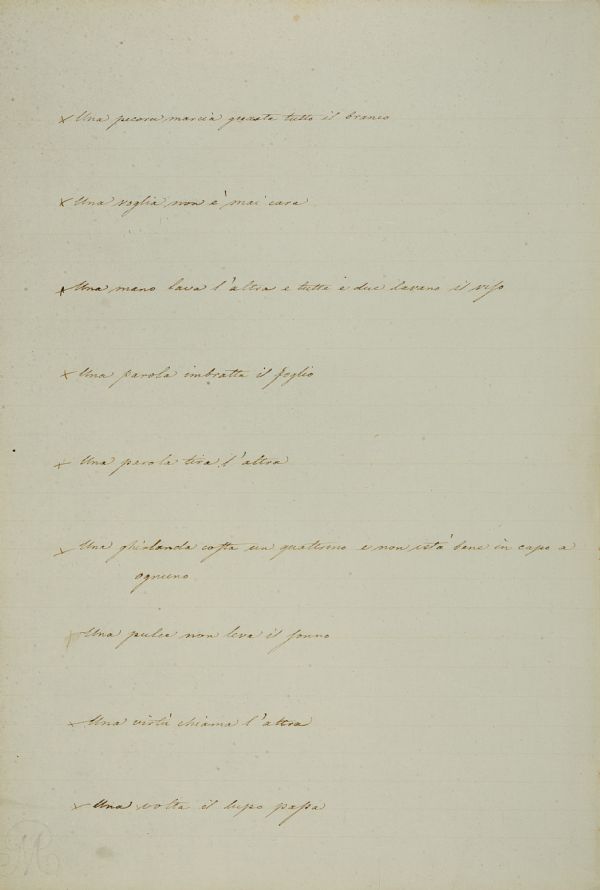 Una pecora marcia guasta tutto il branco
Una voglia non è mai cara
Una mano lava l'altra e tutte e due lavano il viso
Una parola imbratta il foglio
Una parola tira l'altra
Una ghirlanda costa un quattrino e non istà bene in capo a
ognuno
Una pulce non leva il sonno
Una virtù chiama l'altra
Una volta il lupo passa